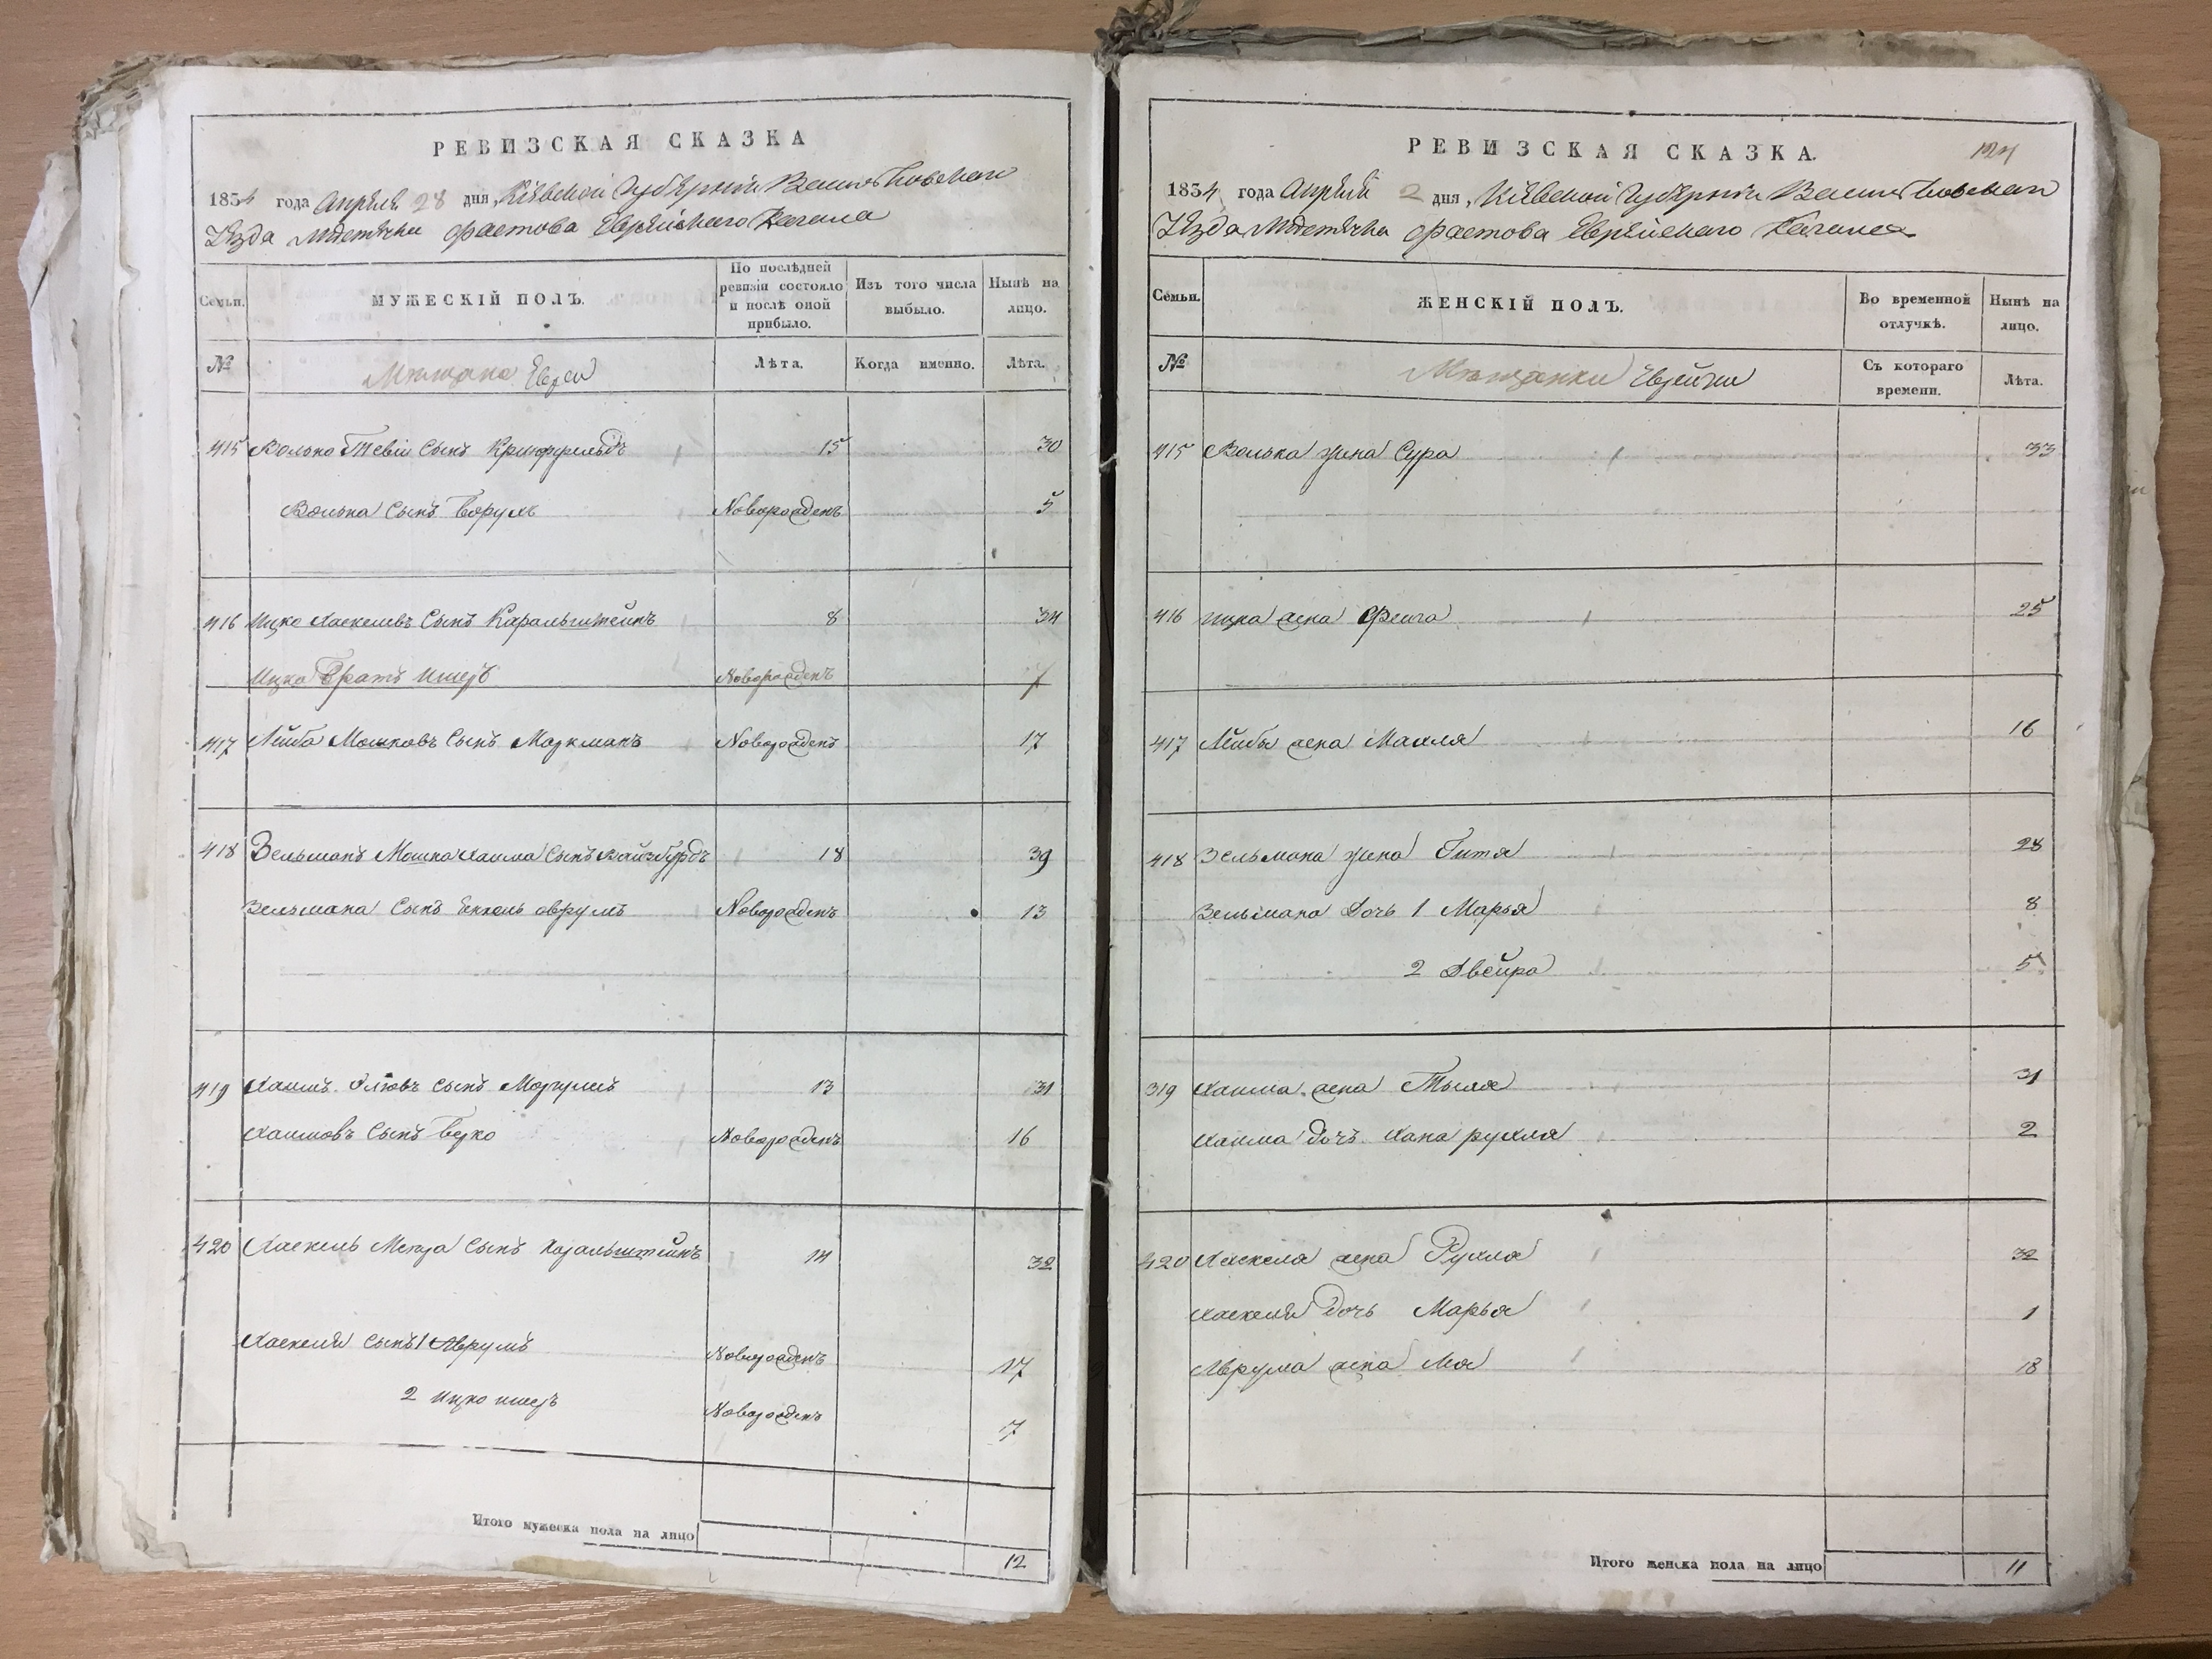 РЕВИЗСКАЯ СКАЗКА
1834 года Апреля 28 дня, Кіевской Губерніи Васильковскаго
Уезда Местечка Фастова Еврейскаго Кагала
Семьи.
МУЖЕСКІЙ ПОЛЪ.
По послѣдней ревизіи состояло и послѣ оной прибыло.
Изъ того числа выбыло.
Нынѣ на лицо.
№
Мещане Евреи
Лѣта.
Когда именно.
Лѣта.
415 Волько Тевіи Сынъ 15 30
Волька Сынъ Борухъ Новорожденъ 5
416 Ицко Хаскелевъ Сынъ Каральштейнъ 8 34
Ицка Братъ Ишеръ Новорожденъ 7
417 Лейба Мошковъ Сынъ Маркманъ Новорожденъ 17
418 Зельманъ Мошка Хаима Сынъ Вайзбурдъ 18 39
Зельмана Сынъ Енкель Аврумъ Новорожденъ 13
419 Хаимъ Сынъ Моргулисъ 13 31
Хаимовъ Сынъ Берко Новорожденъ 16
420 Хаскель Сынъ Каральштейнъ 14 32
Хаскеля Сынъ 1 Аврумъ Новорожденъ 17
2 Ицко Ишеръ Новорожденъ 7
Итого мужеска пола на лицо 12
РЕВИЗСКАЯ СКАЗКА.
1834 года Апреля 2 дня, Кіевской Губерніи Васильковскаго
Уезда Местечка Фастова Еврейскаго Кагала
Семьи.
ЖЕНСКІЙ ПОЛЪ.
Во временной отлучкѣ.
Нынѣ на лицо.
№
Мещанки Еврейки
Съ котораго времени.
Лѣта.
415 Волька жена Сура 33
416 Ицка жена Фейга 25
417 Лейбы жена Махля 16
418 Зельмана жена Гитя 28
Зельмана Дочь 1 Марья 8
2 Двейра 5
319 Хаима жена Тыля 31
Хаима дочъ Хана рухля 2
420 Хаскеля жена Рухля 32
Хаскеля дочь Марья 1
Аврума жена Лея 18
Итого женска пола на лицо 11